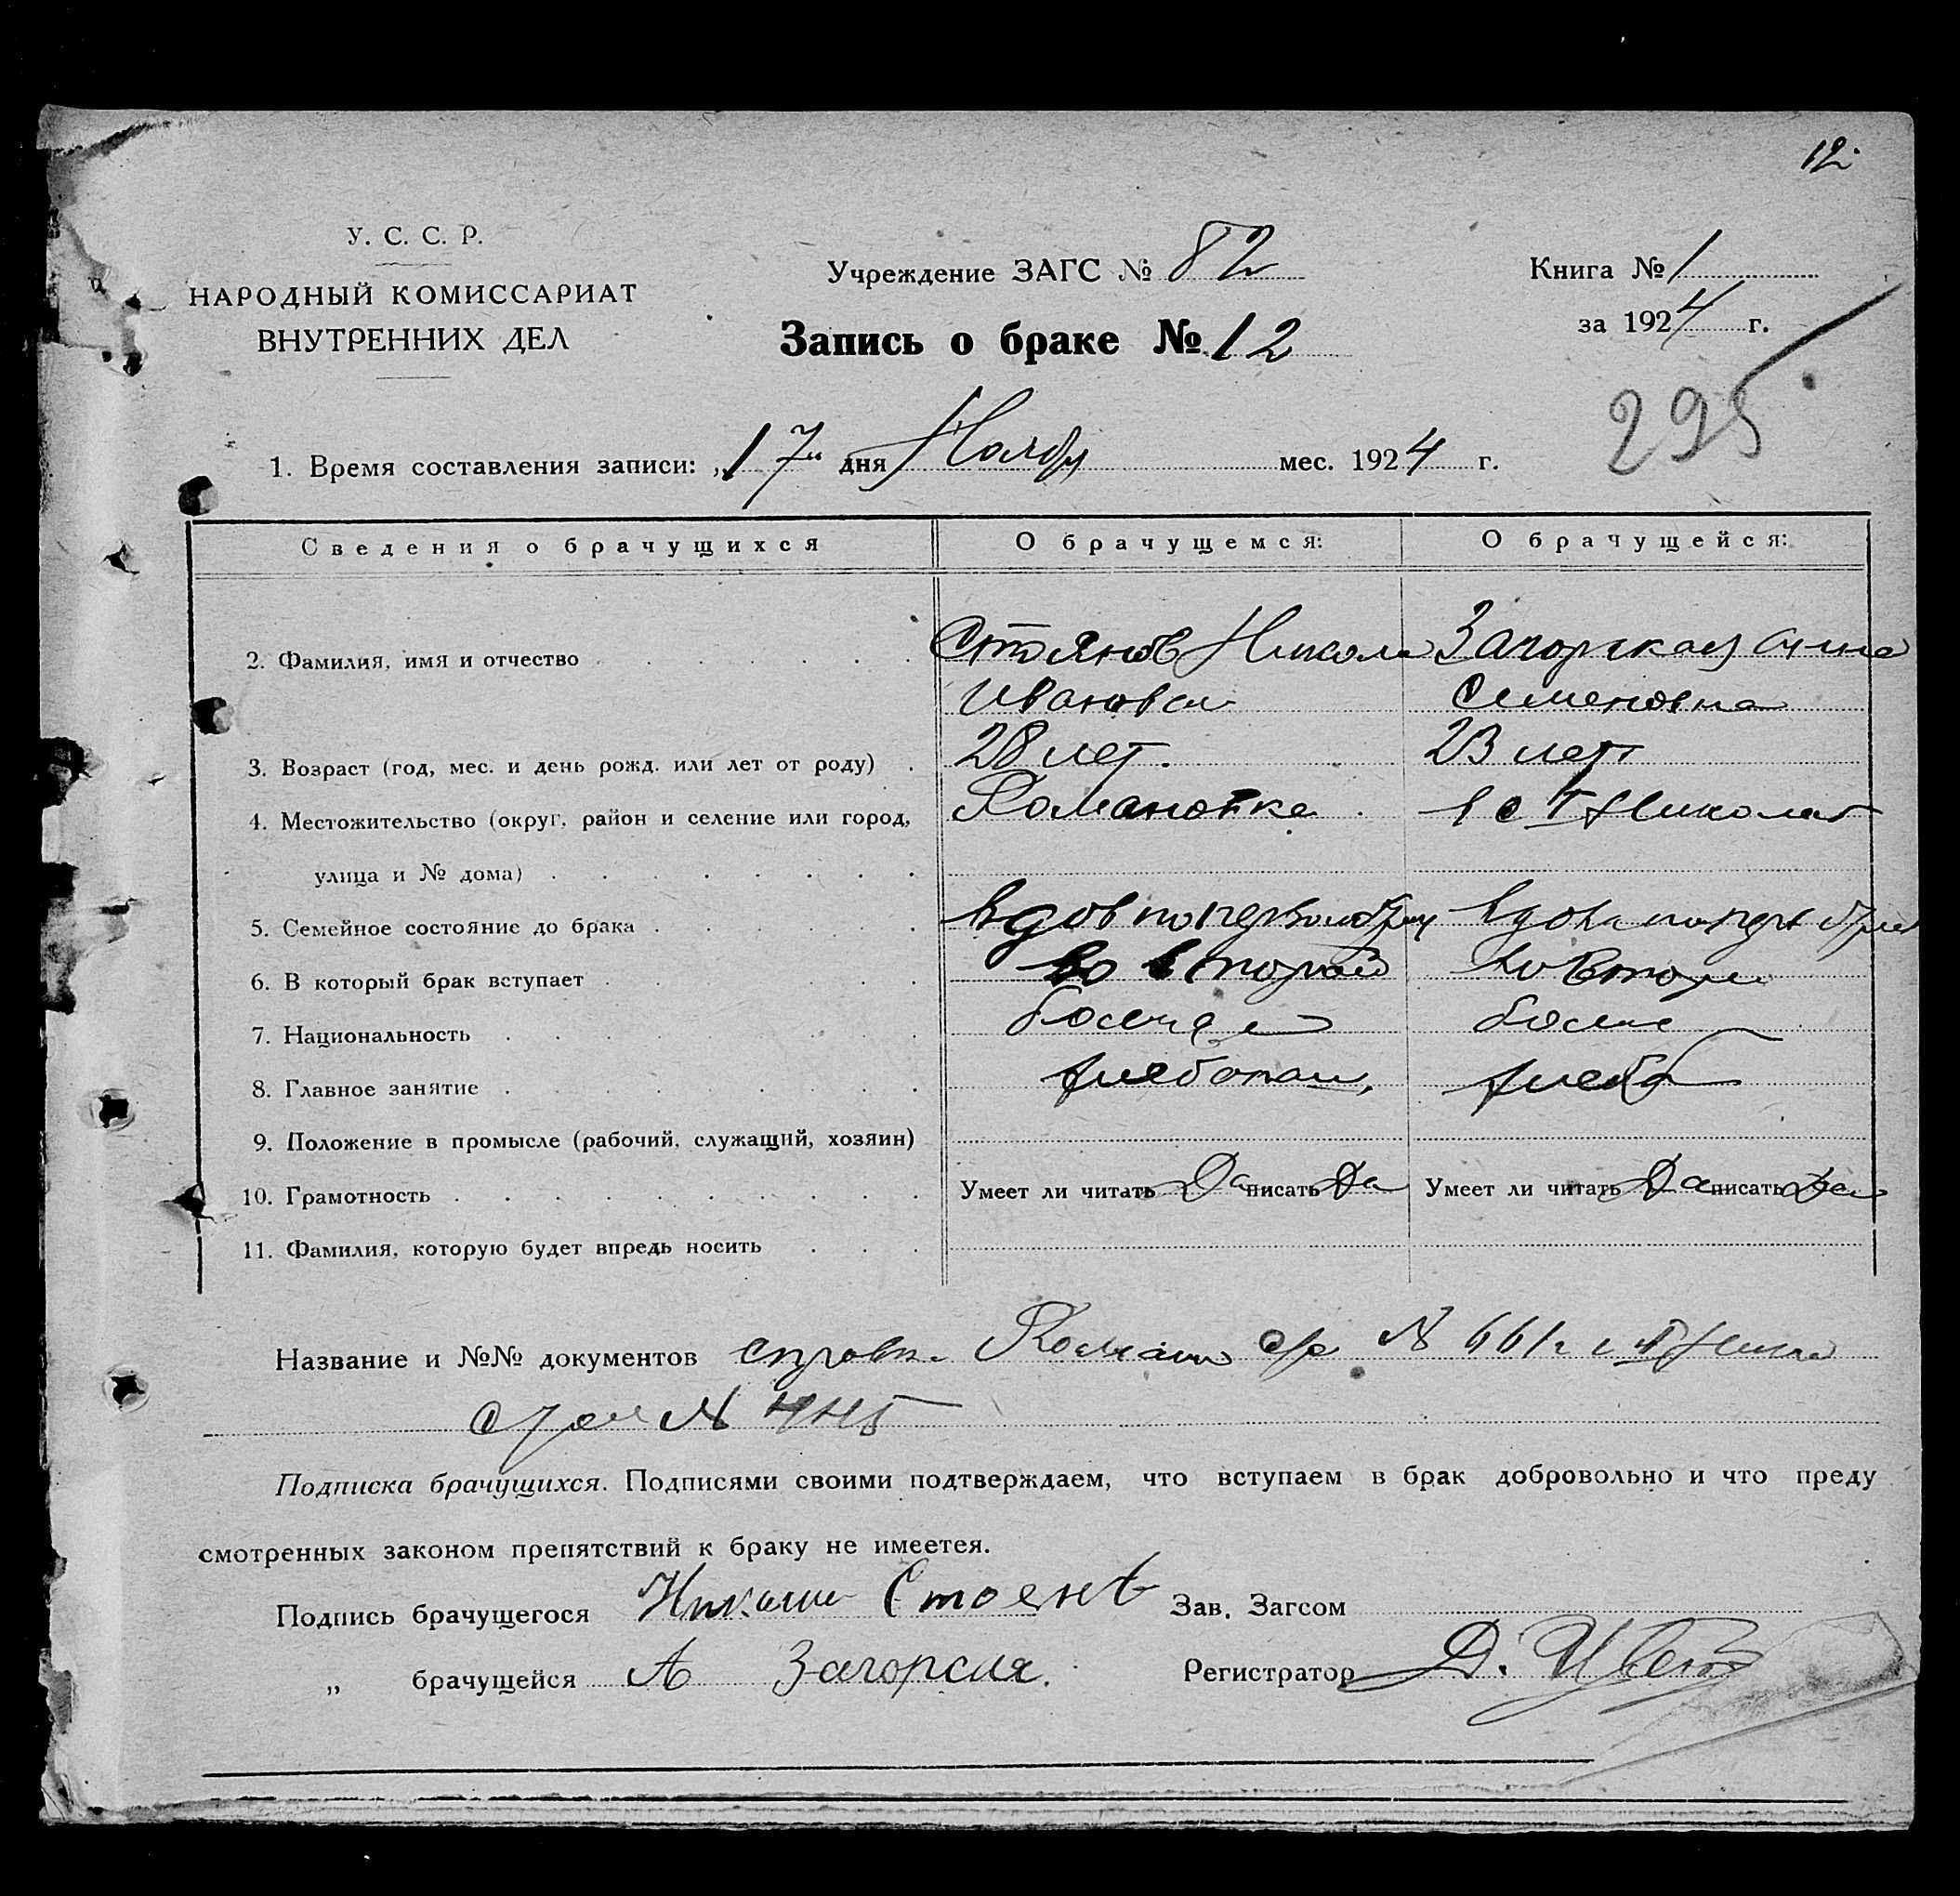 12
У. С. С. Р.
НАРОДНЫЙ КОМИССАРИАТ
ВНУТРЕННИХ ДЕЛ
Учреждение ЗАГС № 82
Книга № 1
за 1924 г.
Запись о браке № 12
295
1. Время составления записи: „17“ дня Ноябр мес. 1924 г.
Сведения о брачущихся О брачущемся: О брачущейся:
2. Фамилия, имя и отчество Стоянов Никола Загорская Анна
Иванович Семеновна
3. Возраст (год, мес. и день рожд. или лет от роду) 28 лет. 23 лет
4. Местожительство (округ, район и селение или город, Романовка
улица и № дома)
5. Семейное состояние до брака вдов по первом брак вдова по перв брак
6. В который брак вступает во второй во втори
7. Национальность
8. Главное занятие хлебопаш, хлеб
9. Положение в промысле (рабочий, служащий, хозяин)
10. Грамотность Умеет ли читать Да писать Да Умеет ли читать Да писать Да
11. Фамилия, которую будет впредь носить
Название и №№ документов справк. Роман с/с № 661
№ 445
Подписка брачущихся. Подписями своими подтверждаем, что вступаем в брак добровольно и что преду
смотренных законом препятствий к браку не имеется.
Подпись брачущегося Стоенв Зав. Загсом
„ брачущейся А Загорсия. Регистратор Д.